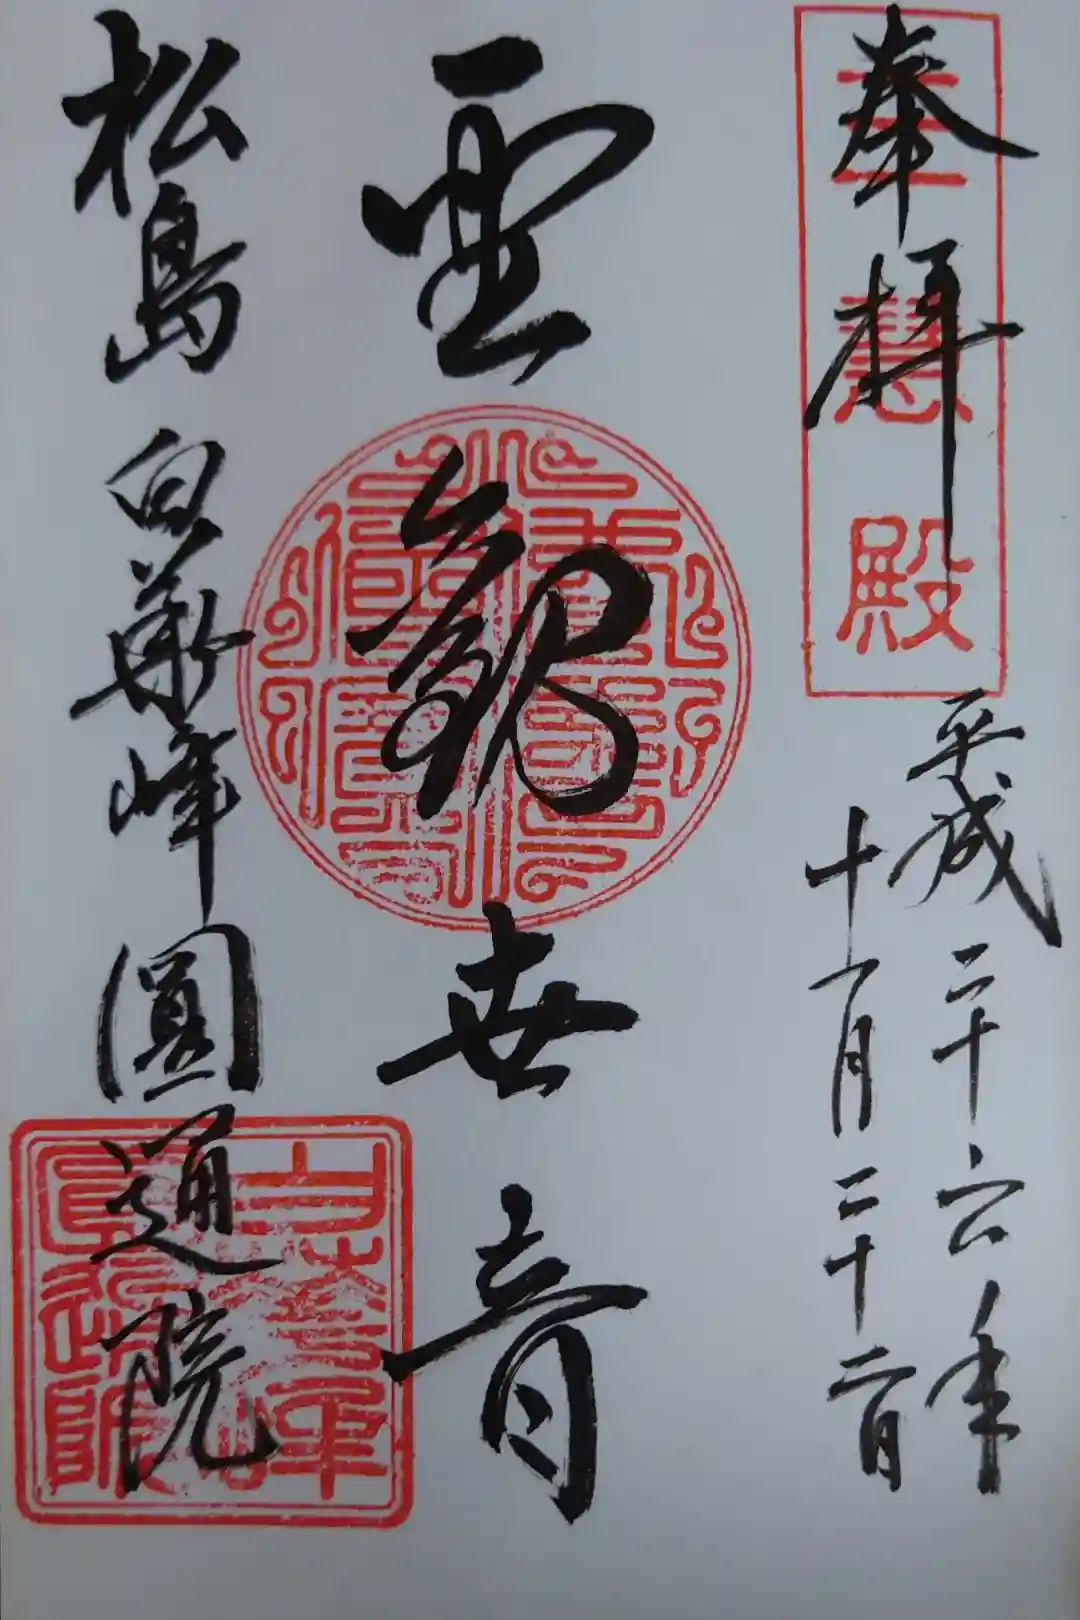 奉拝
三慧殿
平成二十六年
十一月二十二日
聖観世音
松島 白華峰 圓通院
白華峰
圓通院